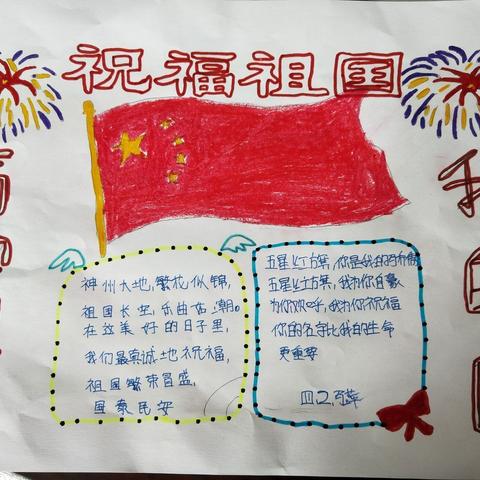 祝福祖国
神州大地,繁花似锦,
祖国长空,乐曲如潮。
在这美好的日子里,
我们最真诚地祝福,
祖国繁荣昌盛,
国泰民安
五星红旗,你是我的骄傲
五星红旗,我为你自豪
为你欢呼,我为你祝福
你的名字比我的生命
更重要
四.2.
我的